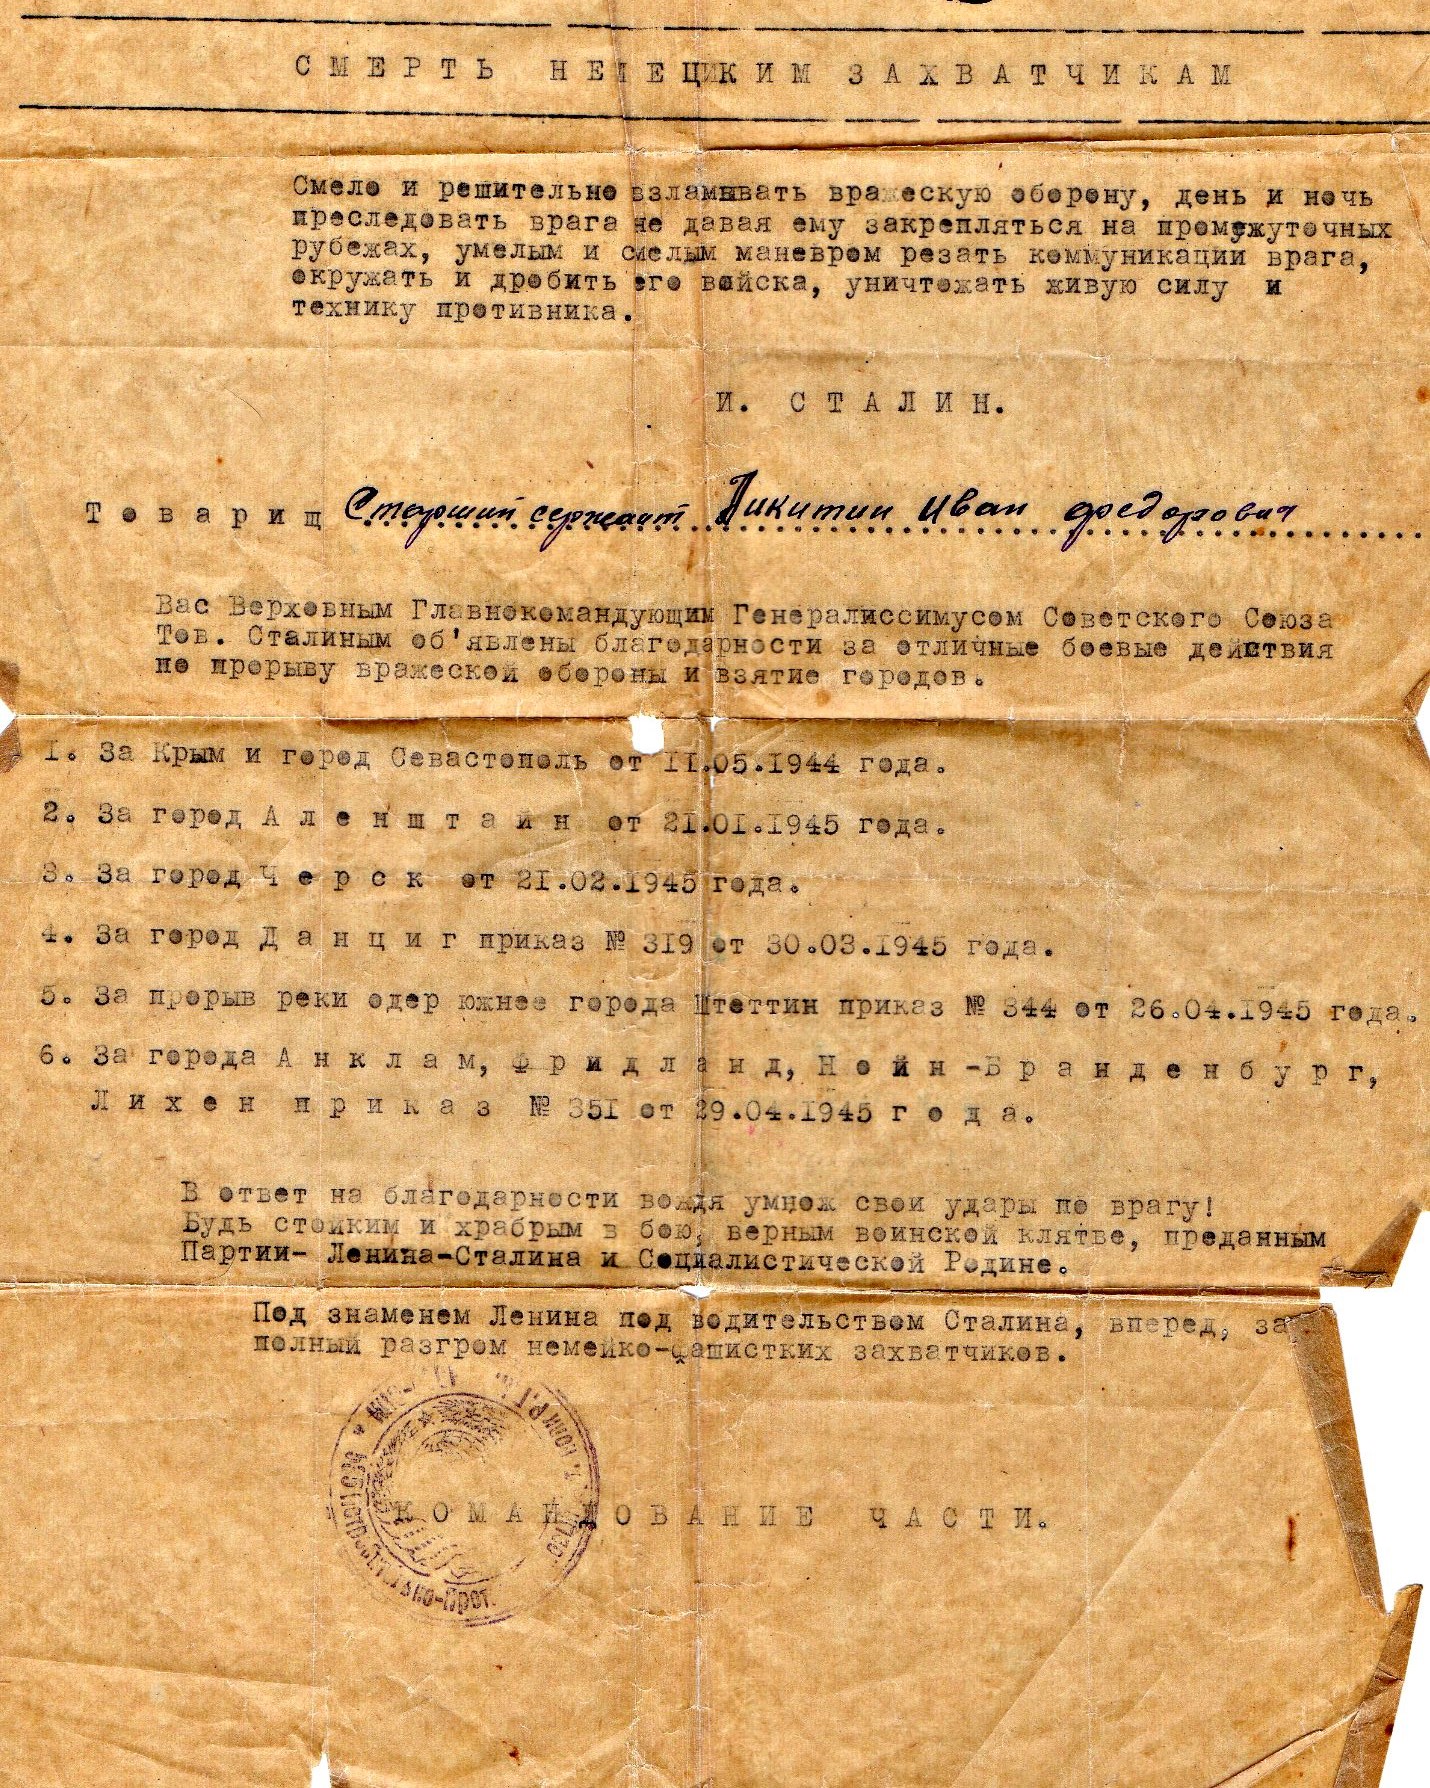 СМЕРТЬ НЕМЕЦКИМ ЗАХВАТЧИКАМ
Смело и решительно взламывать вражескую оборону, день и ночь
преследовать врага не давая ему закрепляться на промежуточных
рубежах, умелым и смелым маневром резать коммуникации врага,
окружать и дробить его войска, уничтожать живую силу и
технику противника.
И. СТАЛИН.
Товарищ Старший сержант Никитин Иван Федорович
Вас Верховным Главнокомандующим Генералиссимусом Советского Союза
Тов. Сталиным об'явлены благодарности за отличные боевые действия
по прорыву вражеской обороны и взятие городов.
1. За Крым и город Севастополь от 11.05.1944 года.
2. За город Аленштайн от 21.01.1945 года.
3. За город Черск от 21.02.1945 года.
4. За город Данциг приказ № 319 от 30.03.1945 года.
5. За прорыв реки одер южнее города Штеттин приказ № 344 от 26.04.1945 года.
6. За города Анклам, Фридланд, Нойн-Бранденбург,
Лихен приказ № 351 от 29.04.1945 года.
В ответ на благодарности вождя умнож свои удары по врагу!
Будь стойким и храбрым в бою, верным воинской клятве, преданным
Партии- Ленина-Сталина и Социалистической Родине.
Под знаменем Ленина под водительством Сталина, вперед, за
полный разгром немейко-фашистких захватчиков.
КОМАНДОВАНИЕ ЧАСТИ.